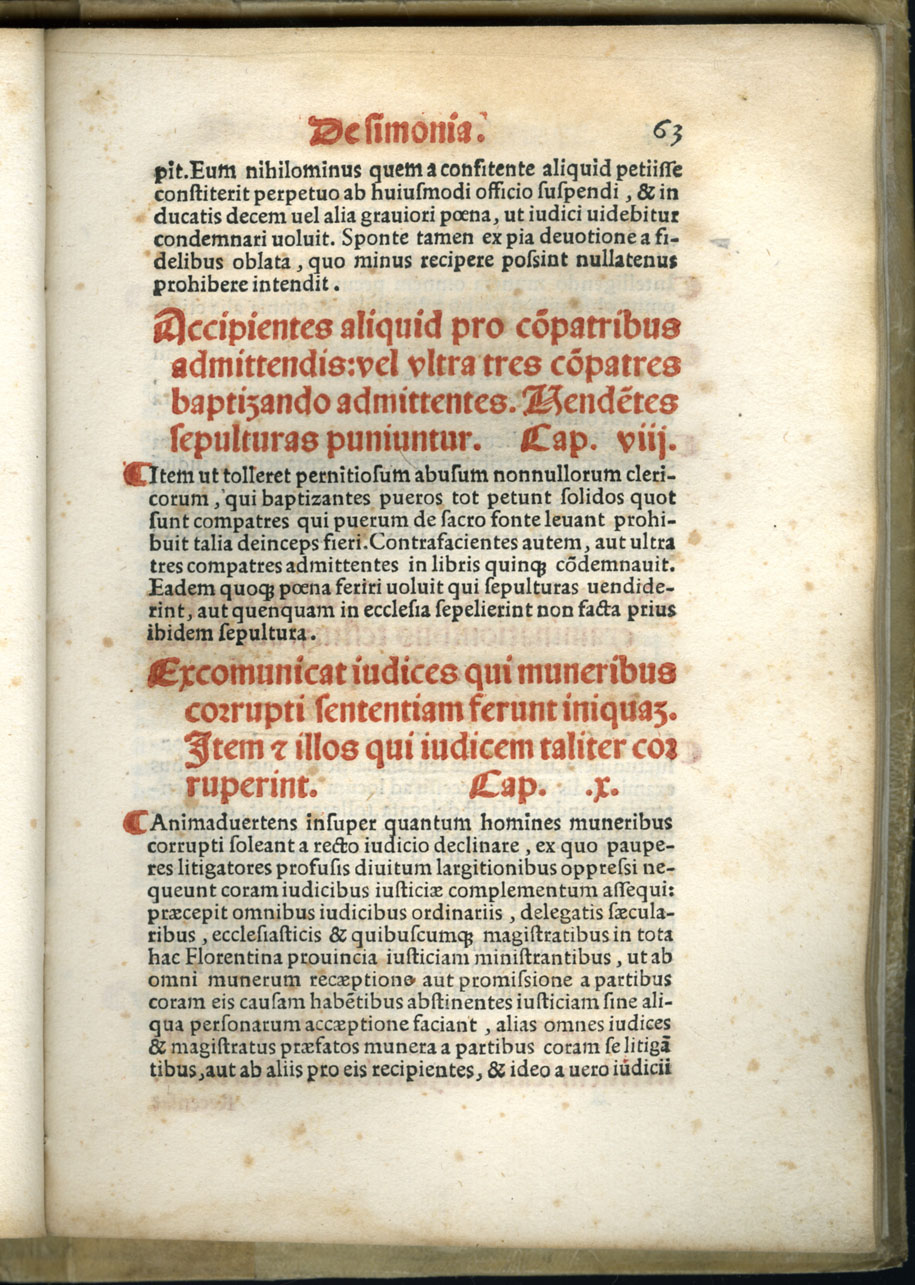 De simonia. 63
pit. Eum nihilominus quem a confitente aliquid petiisse
constiterit perpetuo ab huiusmodi officio suspendi, & in
ducatis decem uel alia grauiori pœna, ut iudici uidebitur
condemnari uoluit. Sponte tamen ex pia deuotione a fi-
delibus oblata, quo minus recipere possint nullatenus
prohibere intendit.
Accipientes aliquid pro cõpatribus
admittendis: vel vltra tres cõpatres
baptizando admittentes. Vendẽtes
sepulturas puniuntur. Cap. viij.
¶ Item ut tolleret pernitiosum abusum nonnullorum cleri-
corum, qui baptizantes pueros tot petunt solidos quot
sunt compatres qui puerum de sacro fonte leuant prohi-
buit talia deinceps fieri. Contrafacientes autem, aut ultra
tres compatres admittentes in libris quinqꝫ cõdemnauit.
Eadem quoqꝫ pœna feriri uoluit qui sepulturas uendide-
rint, aut quenquam in ecclesia sepelierint non facta prius
ibidem sepultura.
Excomunicat iudices qui muneribus
corrupti sententiam ferunt iniquaꝫ.
Item ⁊ illos qui iudicem taliter cor
ruperint. Cap. .x.
¶ Animaduertens insuper quantum homines muneribus
corrupti soleant a recto iudicio declinare, ex quo paupe-
res litigatores profusis diuitum largitionibus oppressi ne-
queunt coram iudicibus iusticiæ complementum assequi:
præcepit omnibus iudicibus ordinariis, delegatis sæcula-
ribus, ecclesiasticis & quibuscumqꝫ magistratibus in tota
hac Florentina prouincia iusticiam ministrantibus, ut ab
omni munerum recæptione aut promissione a partibus
coram eis causam habẽtibus abstinentes iusticiam sine ali-
qua personarum accæptione faciant, alias omnes iudices
& magistratus præfatos munera a partibus coram se litigã
tibus, aut ab aliis pro eis recipientes, & ideo a uero iudicii